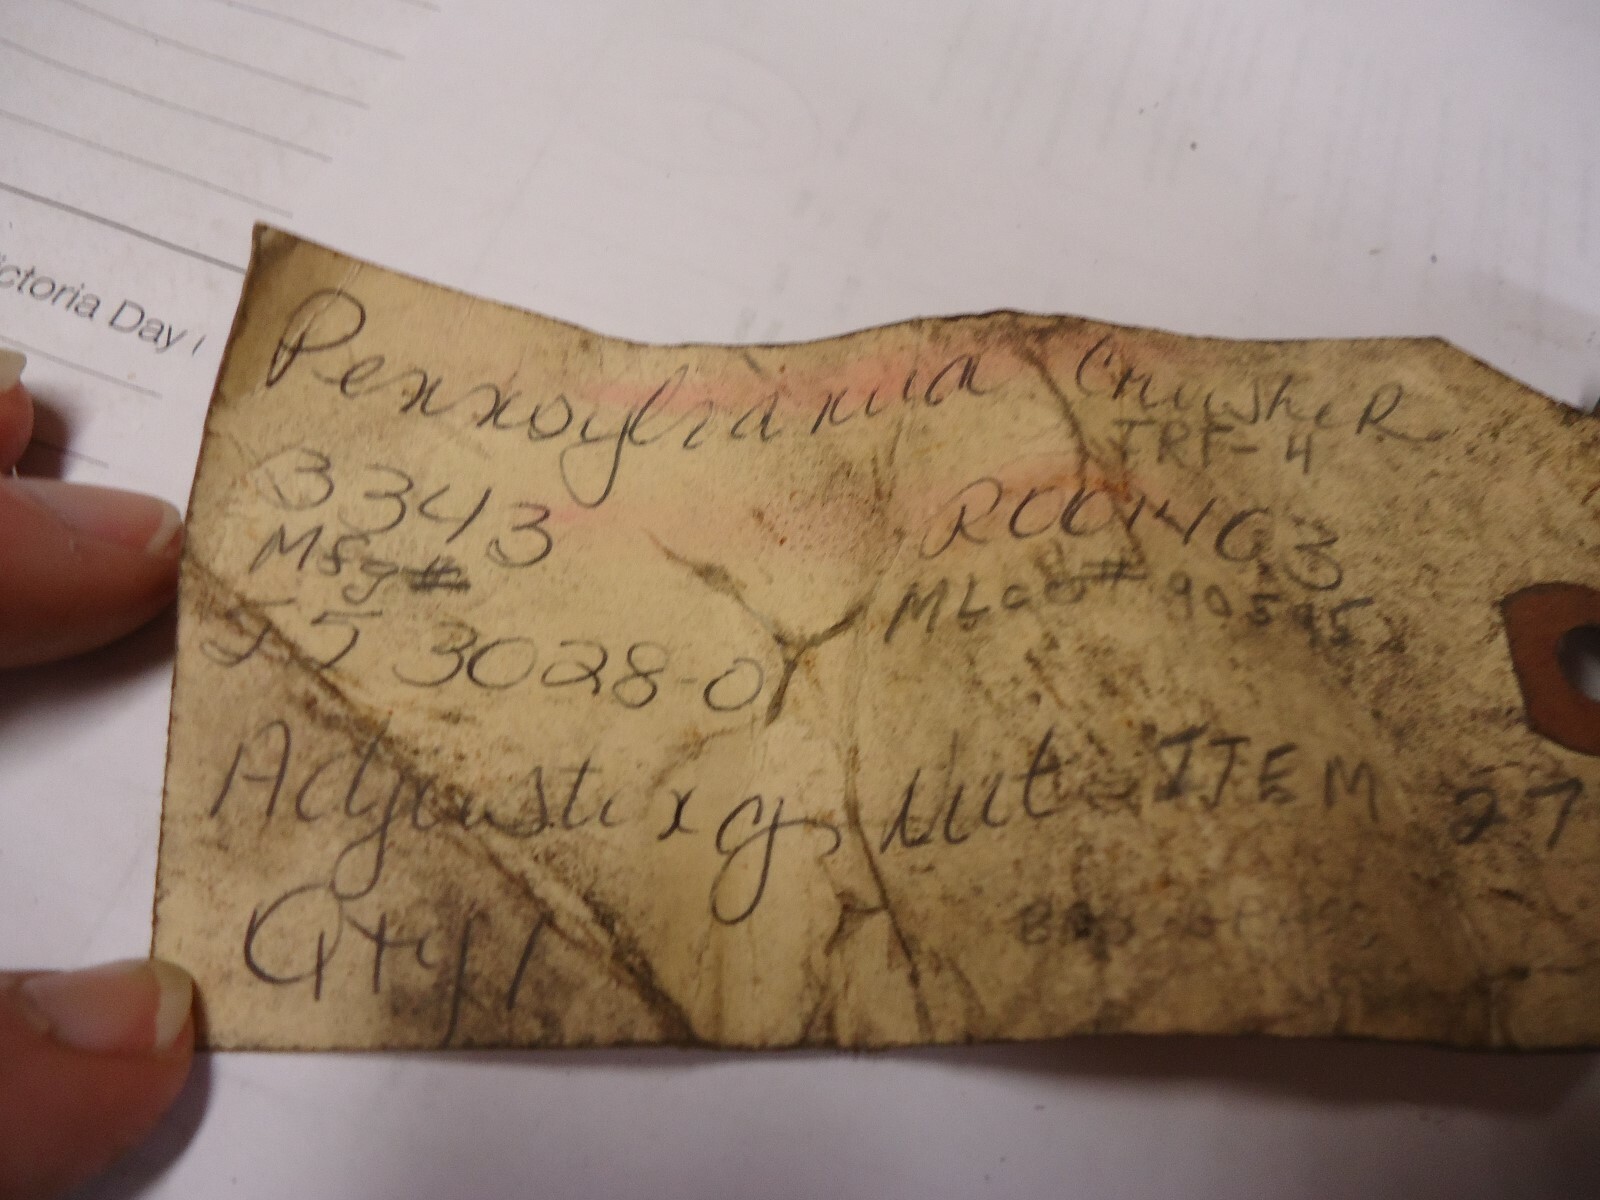 ictoria Day
Pennsylvania Crusher
TRF-4
3343 R004163
Mfg# MLao# 90595
55 3028-01
Adjusting Nut - ITEM 27
Qty 1